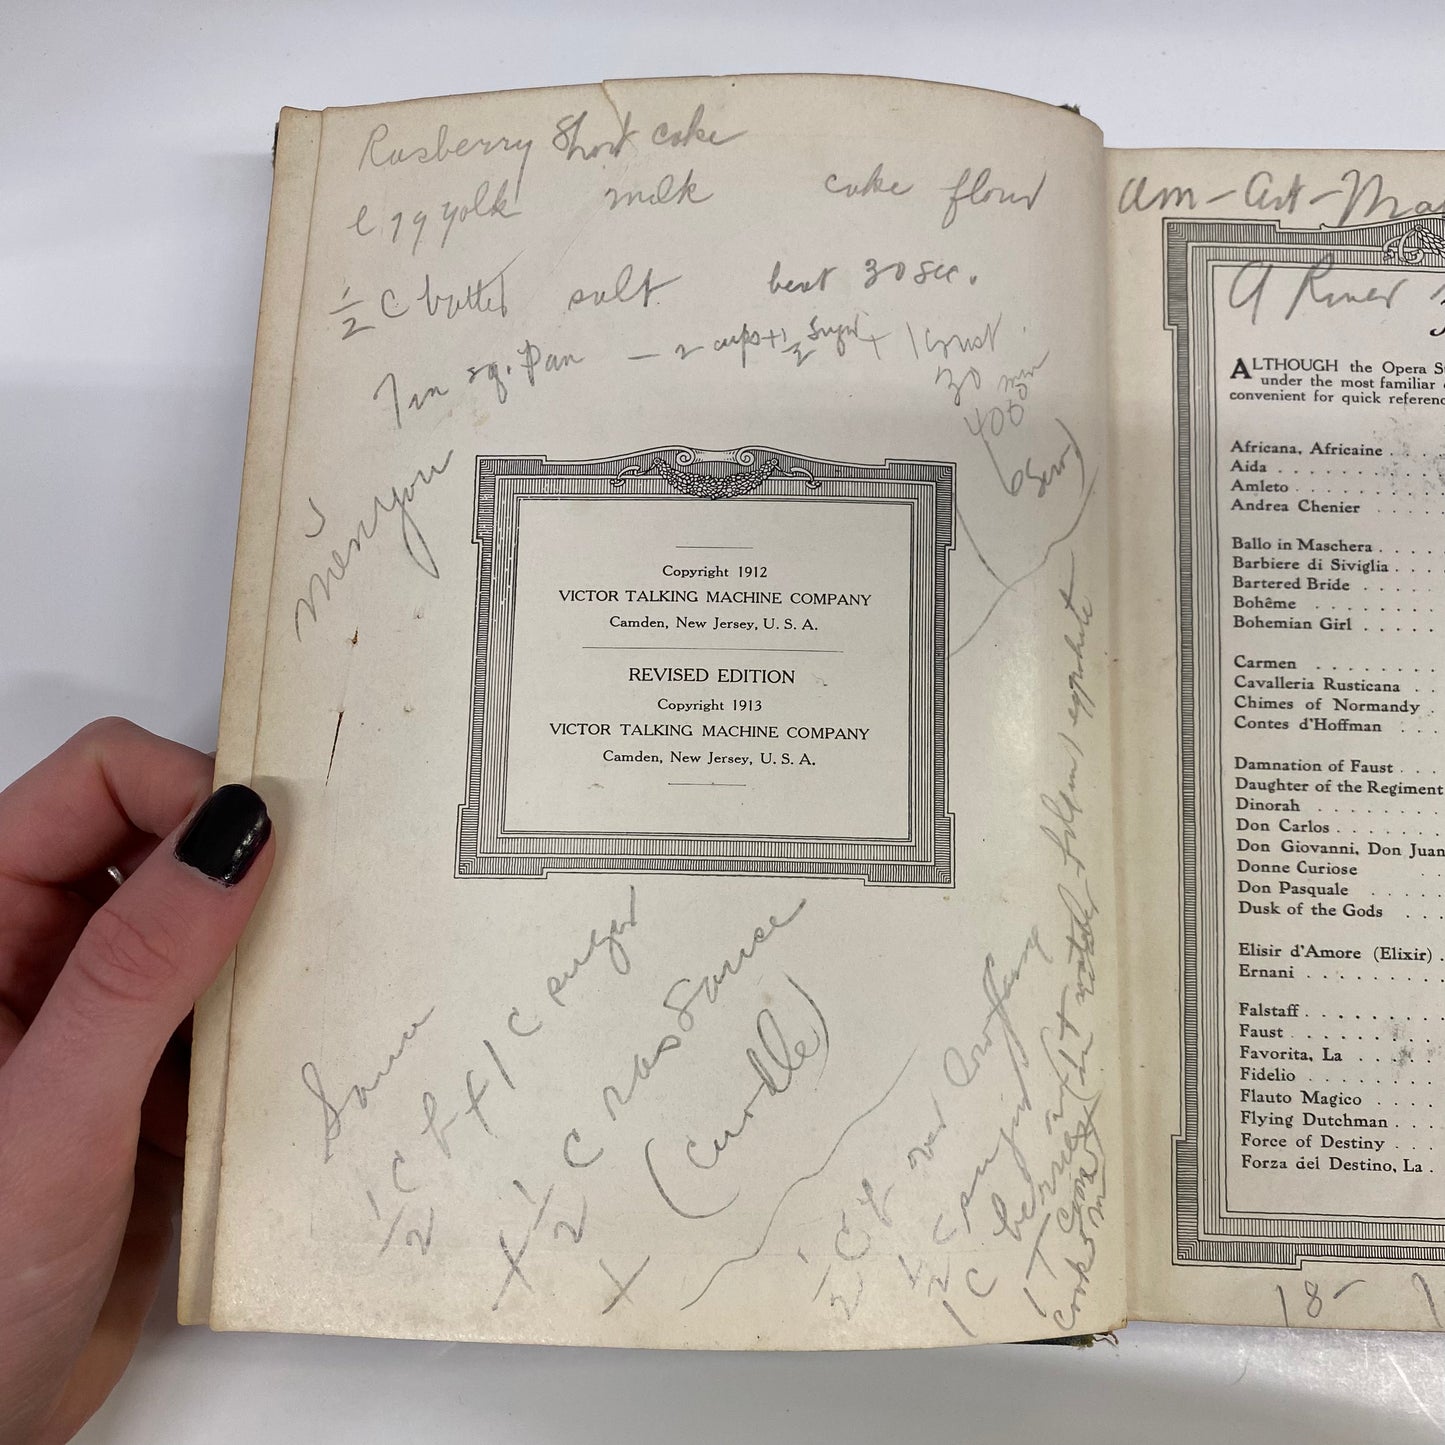 Rasberry Short cake
egg yolk milk cake flour
½ C butter salt beat 30 sec.
7 in sq. Pan — 2 cups + ½ Sugar + 1 crust.
30 min
400°
(6 Serv)
Menyou
Copyright 1912
VICTOR TALKING MACHINE COMPANY
Camden, New Jersey, U. S. A.
REVISED EDITION
Copyright 1913
VICTOR TALKING MACHINE COMPANY
Camden, New Jersey, U. S. A.
Sauce
½ C b + 1 C sugar
+ ½ C ras Sauce
+ (curdle)
½ C
½ C sugar
1 C
1 T
cook
am-art-Ma
A River
ALTHOUGH the Opera S
under the most familiar
convenient for quick referenc
Africana, Africaine . . .
Aida . . . . . . . .
Amleto . . . . . . .
Andrea Chenier . . . .
Ballo in Maschera . . . .
Barbiere di Siviglia . . . .
Bartered Bride . . . . .
Bohême . . . . . . .
Bohemian Girl . . . . .
Carmen . . . . . . .
Cavalleria Rusticana . .
Chimes of Normandy .
Contes d'Hoffman . . .
Damnation of Faust . . .
Daughter of the Regiment
Dinorah . . . . . . .
Don Carlos . . . . . .
Don Giovanni, Don Juan
Donne Curiose . .
Don Pasquale . . . . .
Dusk of the Gods . . .
Elisir d'Amore (Elixir) .
Ernani . . . . . . .
Falstaff . . . . . . .
Faust . . . . . . . .
Favorita, La . . . . .
Fidelio . . . . . . .
Flauto Magico . . . .
Flying Dutchman . . .
Force of Destiny . . .
Forza del Destino, La .
18-